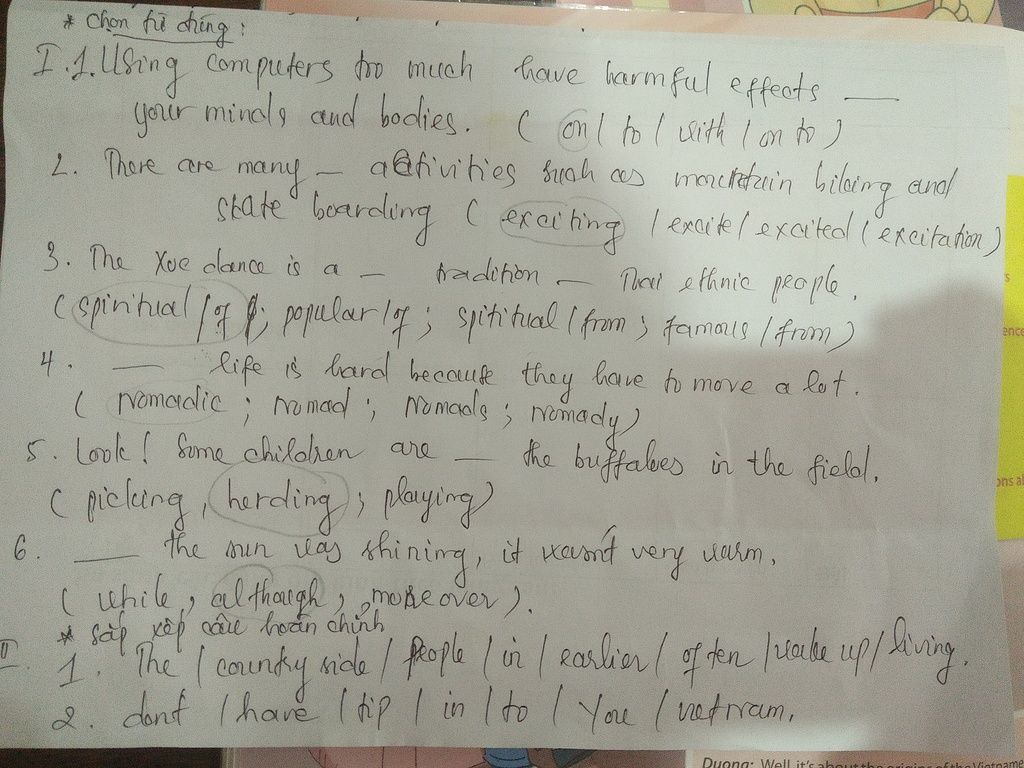 * Chọn từ đúng:
I.1. Using computers too much have harmful effects ___
your minds and bodies. ( on / to / with / on to )
2. There are many _ activities such as mountain biking and
skate boarding ( exciting / excite / excited / excitation )
3. The Xoe dance is a _ tradition _ Thai ethnic people.
( spiritual / of ; popular / of ; spititual / from ; famous / from )
4. ___ life is hard because they have to move a lot.
( Nomadic ; nomad ; Nomads ; nomady )
5. Look! Some children are ___ the buffaloes in the field.
( picking , herding ; playing )
6. ___ the sun was shining, it wasn't very warm.
( while , although , moreover ).
* sắp xếp câu hoàn chỉnh
II. 1. The / country side / people / in / earlier / often / wake up / living.
2. don't / have / tip / in / to / You / vietnam.
Duong: Well, it's about the origins of the Vietname